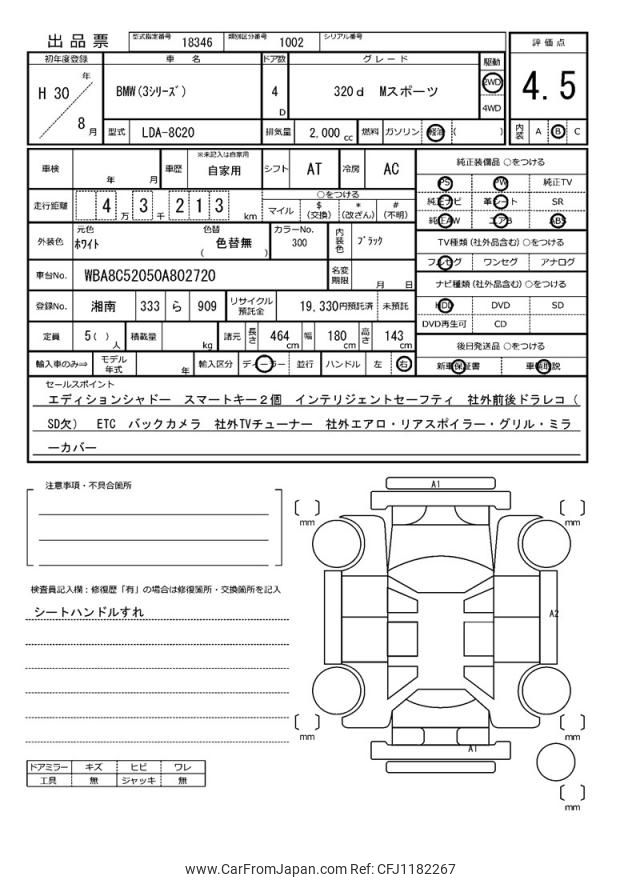 出品票 型式指定番号 18346 類別区分番号 1002 シリアル番号
初年度登録 車 名 ドア数 グレード 駆動 評価点
H 30 年 8 月 BMW(3シリーズ) 4 D 320d Mスポーツ 2WD 4WD 4.5
型式 LDA-8C20 排気量 2,000 cc 燃料 ガソリン 軽油 ( ) 内装 A B C
車検 年 月 車歴 ※未記入は自家用 自家用 シフト AT 冷房 AC
走行距離 4 万 3 千 2 1 3 km ○をつける
マイル $ (交換) * (改ざん) # (不明)
外装色 元色 ホワイト 色替 ( 色替無 ) カラーNo. 300 内装色 ブラック
車台No. WBA8C52050A802720 名変期限 月 日
登録No. 湘南 333 ら 909 リサイクル預託金 19,330円預託済 未預託
定員 5( ) 人 積載量 kg 諸元 長さ 464 cm 幅 180 cm 高さ 143 cm
輸入車のみ⇒ モデル年式 年 輸入区分 ディーラー 並行 ハンドル 左 右
純正装備品 ○をつける
PS PW 純正TV
純正ナビ 革シート SR
純正AW エアB ABS
TV種類(社外品含む)○をつける
フルセグ ワンセグ アナログ
ナビ種類(社外品含む)○をつける
HDD DVD SD
DVD再生可 CD
後日発送品 ○をつける
新車保証書 車輌取説
セールスポイント
エディションシャドー スマートキー2個 インテリジェントセーフティ 社外前後ドラレコ(
SD欠) ETC バックカメラ 社外TVチューナー 社外エアロ・リアスポイラー・グリル・ミラ
ーカバー
注意事項・不具合箇所
検査員記入欄：修復歴「有」の場合は修復箇所・交換箇所を記入
シートハンドルすれ
ドアミラー キズ ヒビ ワレ
工具 無 ジャッキ 無
A1
mm mm
A2
mm mm
A1
mm
www.CarFromJapan.com Ref: CFJ1182267